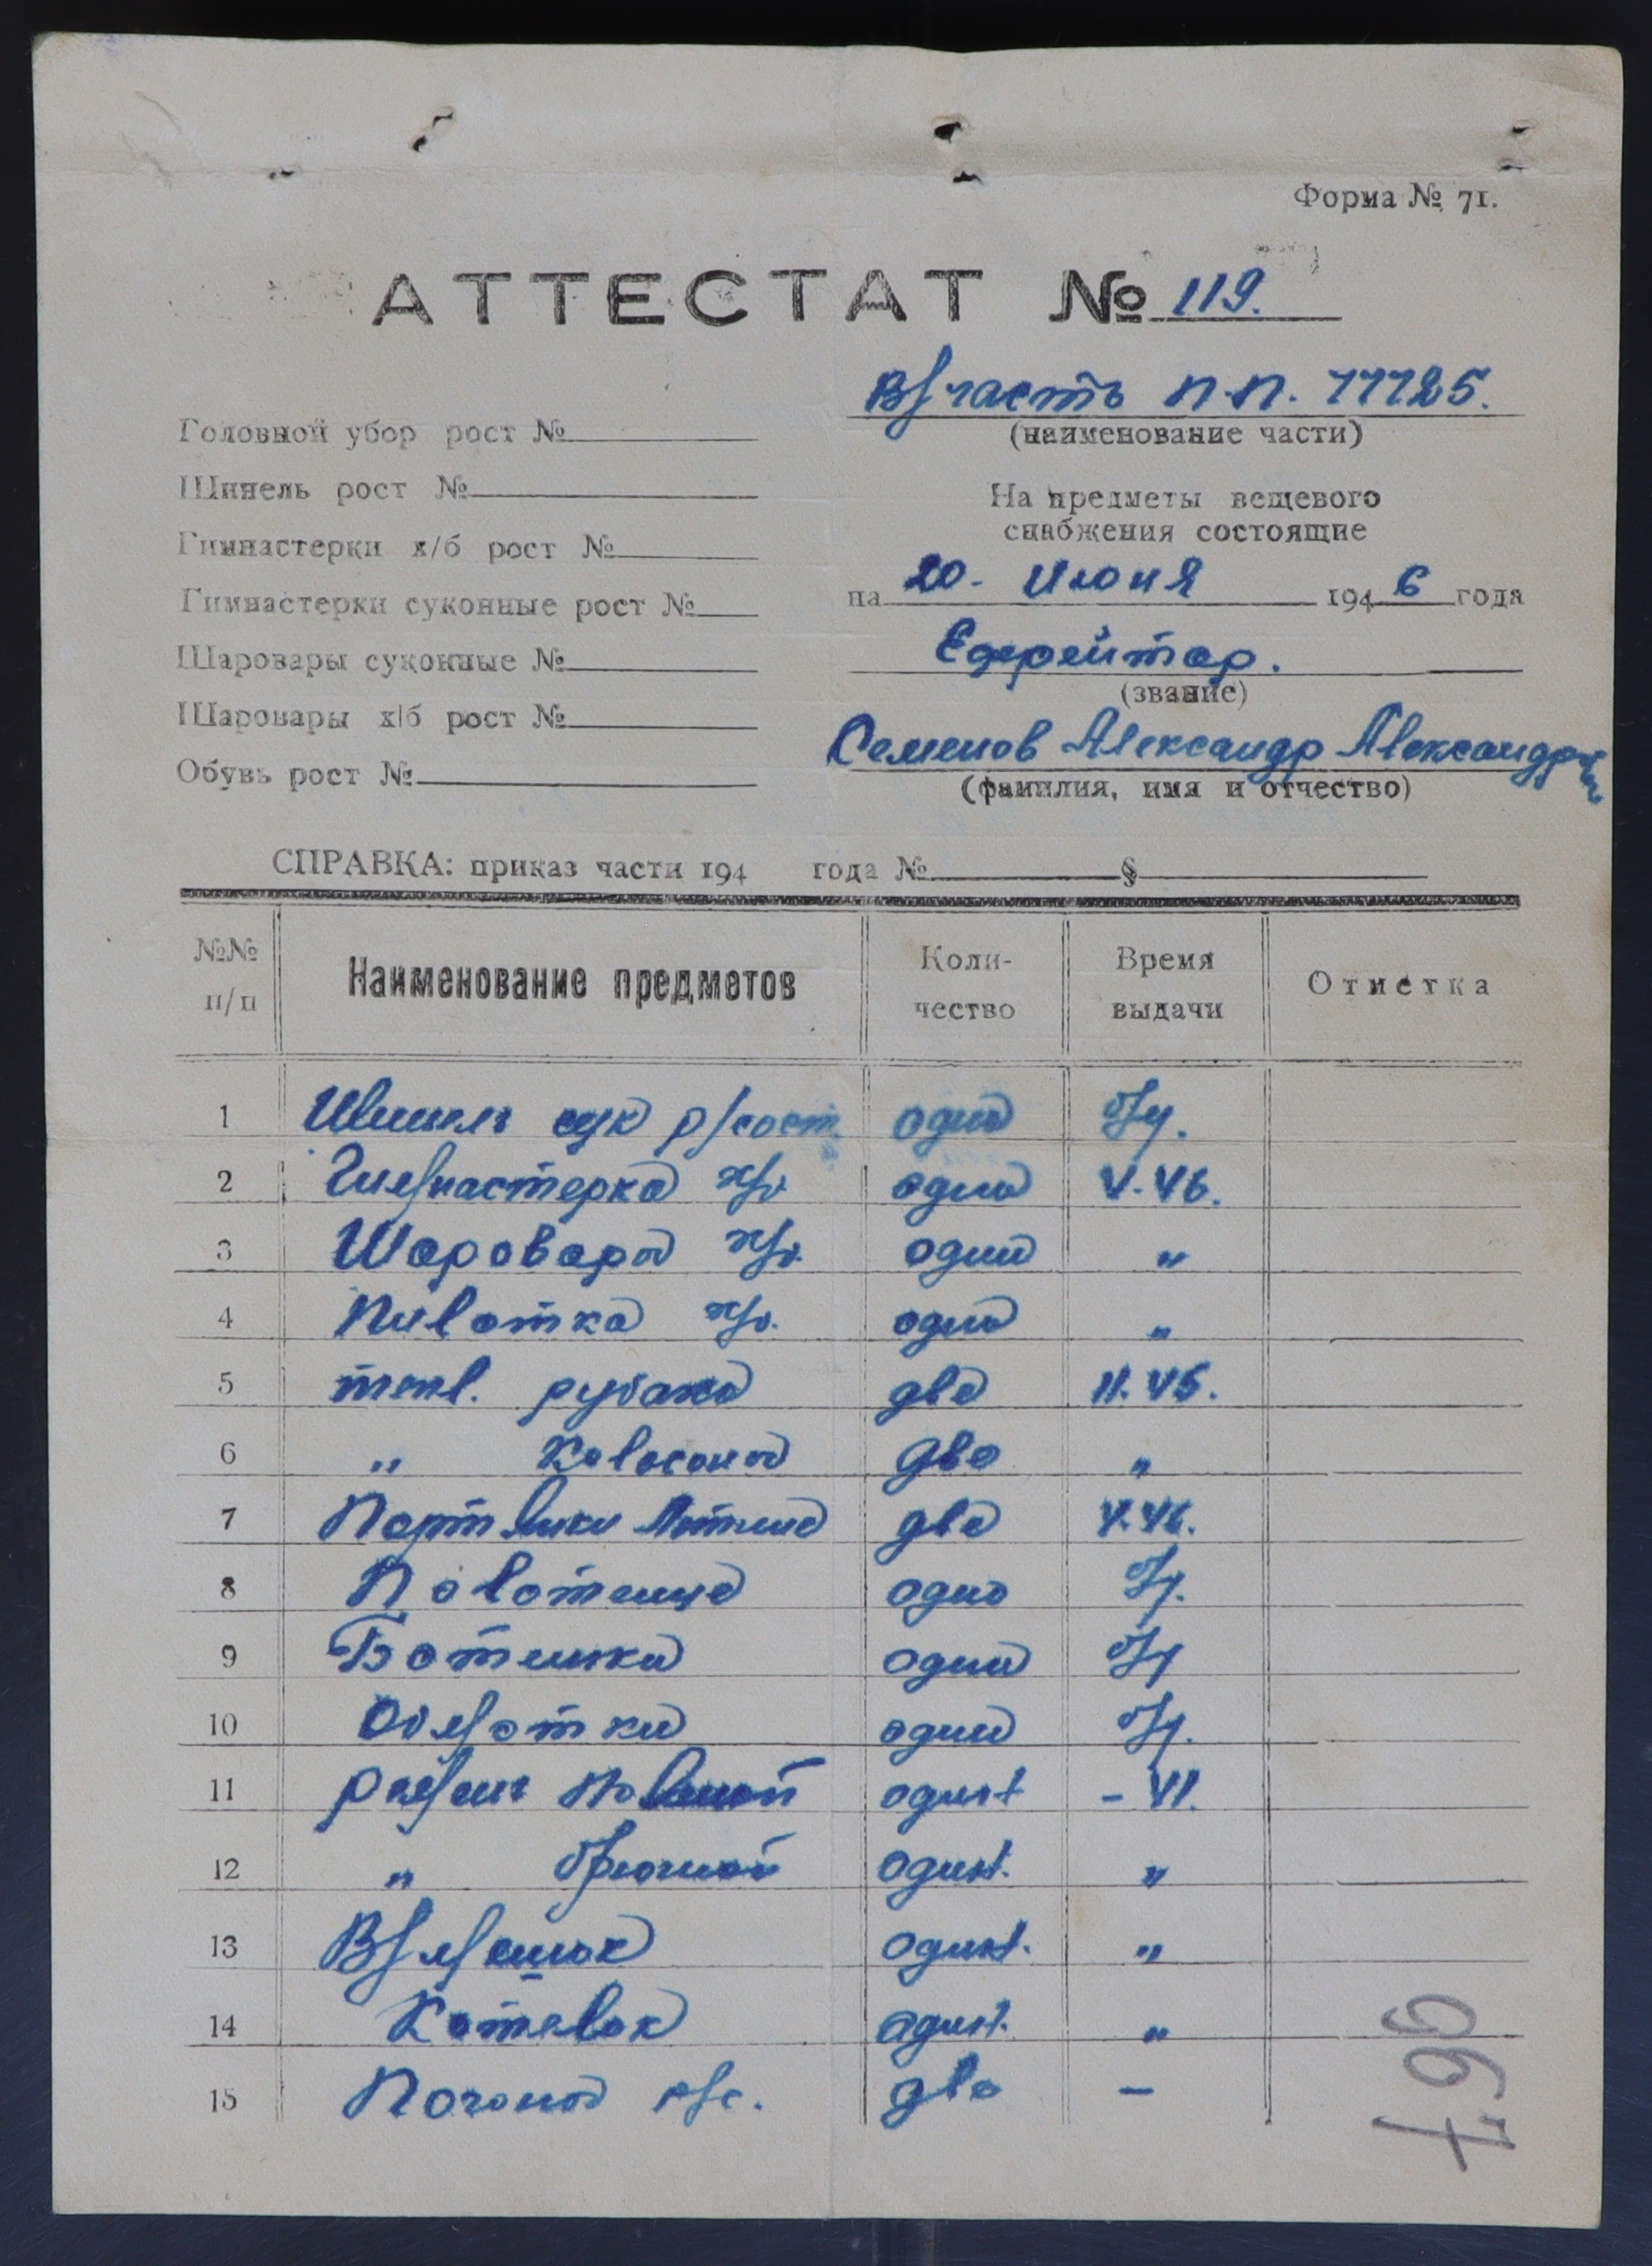 Форма № 71.
АТТЕСТАТ № 119.
В/часть п.п. 77725.
(наименование части)
Головной убор рост №
Шинель рост №
Гимнастерки х/б рост №
Гимнастерки суконные рост №
Шаровары суконные №
Шаровары х/б рост №
Обувь рост №
На предметы вещевого
снабжения состоящие
на 20. Июня 1946 года
Ефрейтор.
(звание)
Семенов Александр Александрович
(фамилия, имя и отчество)
СПРАВКА: приказ части 194 года № §
№№ п/п Наименование предметов Количество Время выдачи Отметка
1 Шинель сук р/сост. одна б/у.
2 Гимнастерка х/б одна V-46.
3 Шаровары х/б. одни "
4 Пилотка х/б. одна "
5 рубаха две 45.
6 " Кальсоны две "
7 Портянки летние две V.46.
8 Полотенце одно б/у.
9 Ботинки одни б/у
10 Обмотки одни б/у.
11 Ремень один -
12 " брючной один. "
13 В/мешок один. "
14 Котелок один. "
15 Погоны две -
967